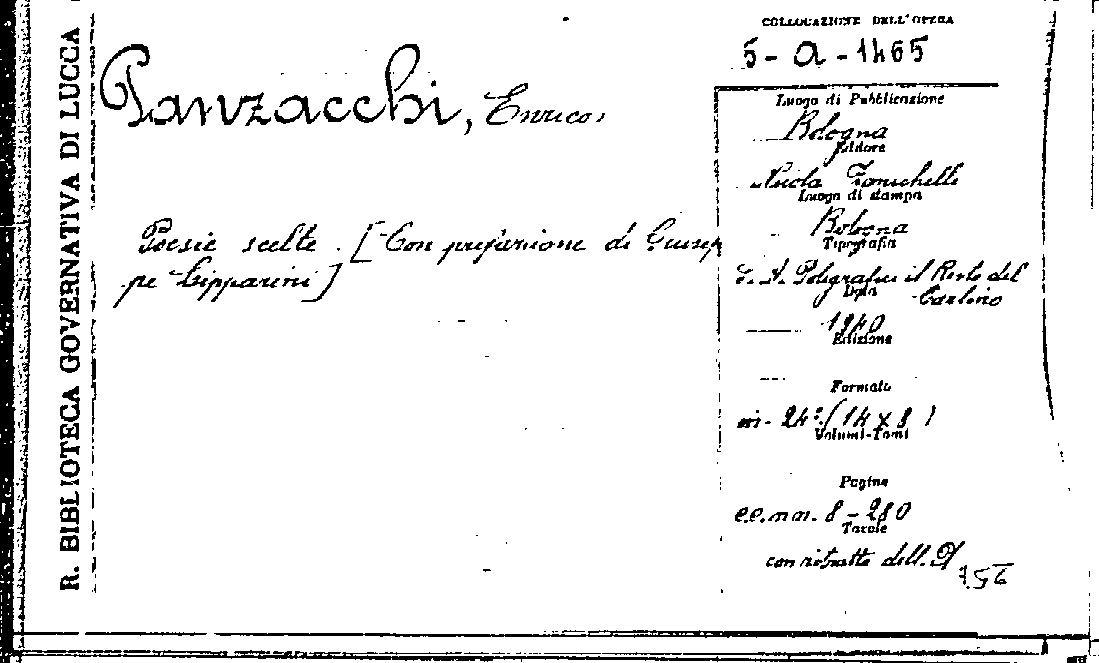 R. BIBLIOTECA GOVERNATIVA DI LUCCA
COLLOCAZIONE DELL'OPERA
5-a-1465
Panzacchi, Enrico,
Poesie scelte. [Con prefazione di Giusep
pe Lipparini]
Luogo di Pubblicazione
Bologna
Editore
Nicola Zanichelli
Luogo di stampa
Bologna
Tipografia
S. A. Poligrafici il Resto del
Carlino
Data
1940
Edizione
Formato
in-24° (14 x 8)
Volumi-Tomi
Pagine
8-280
Tavole
con ritratto dell'A